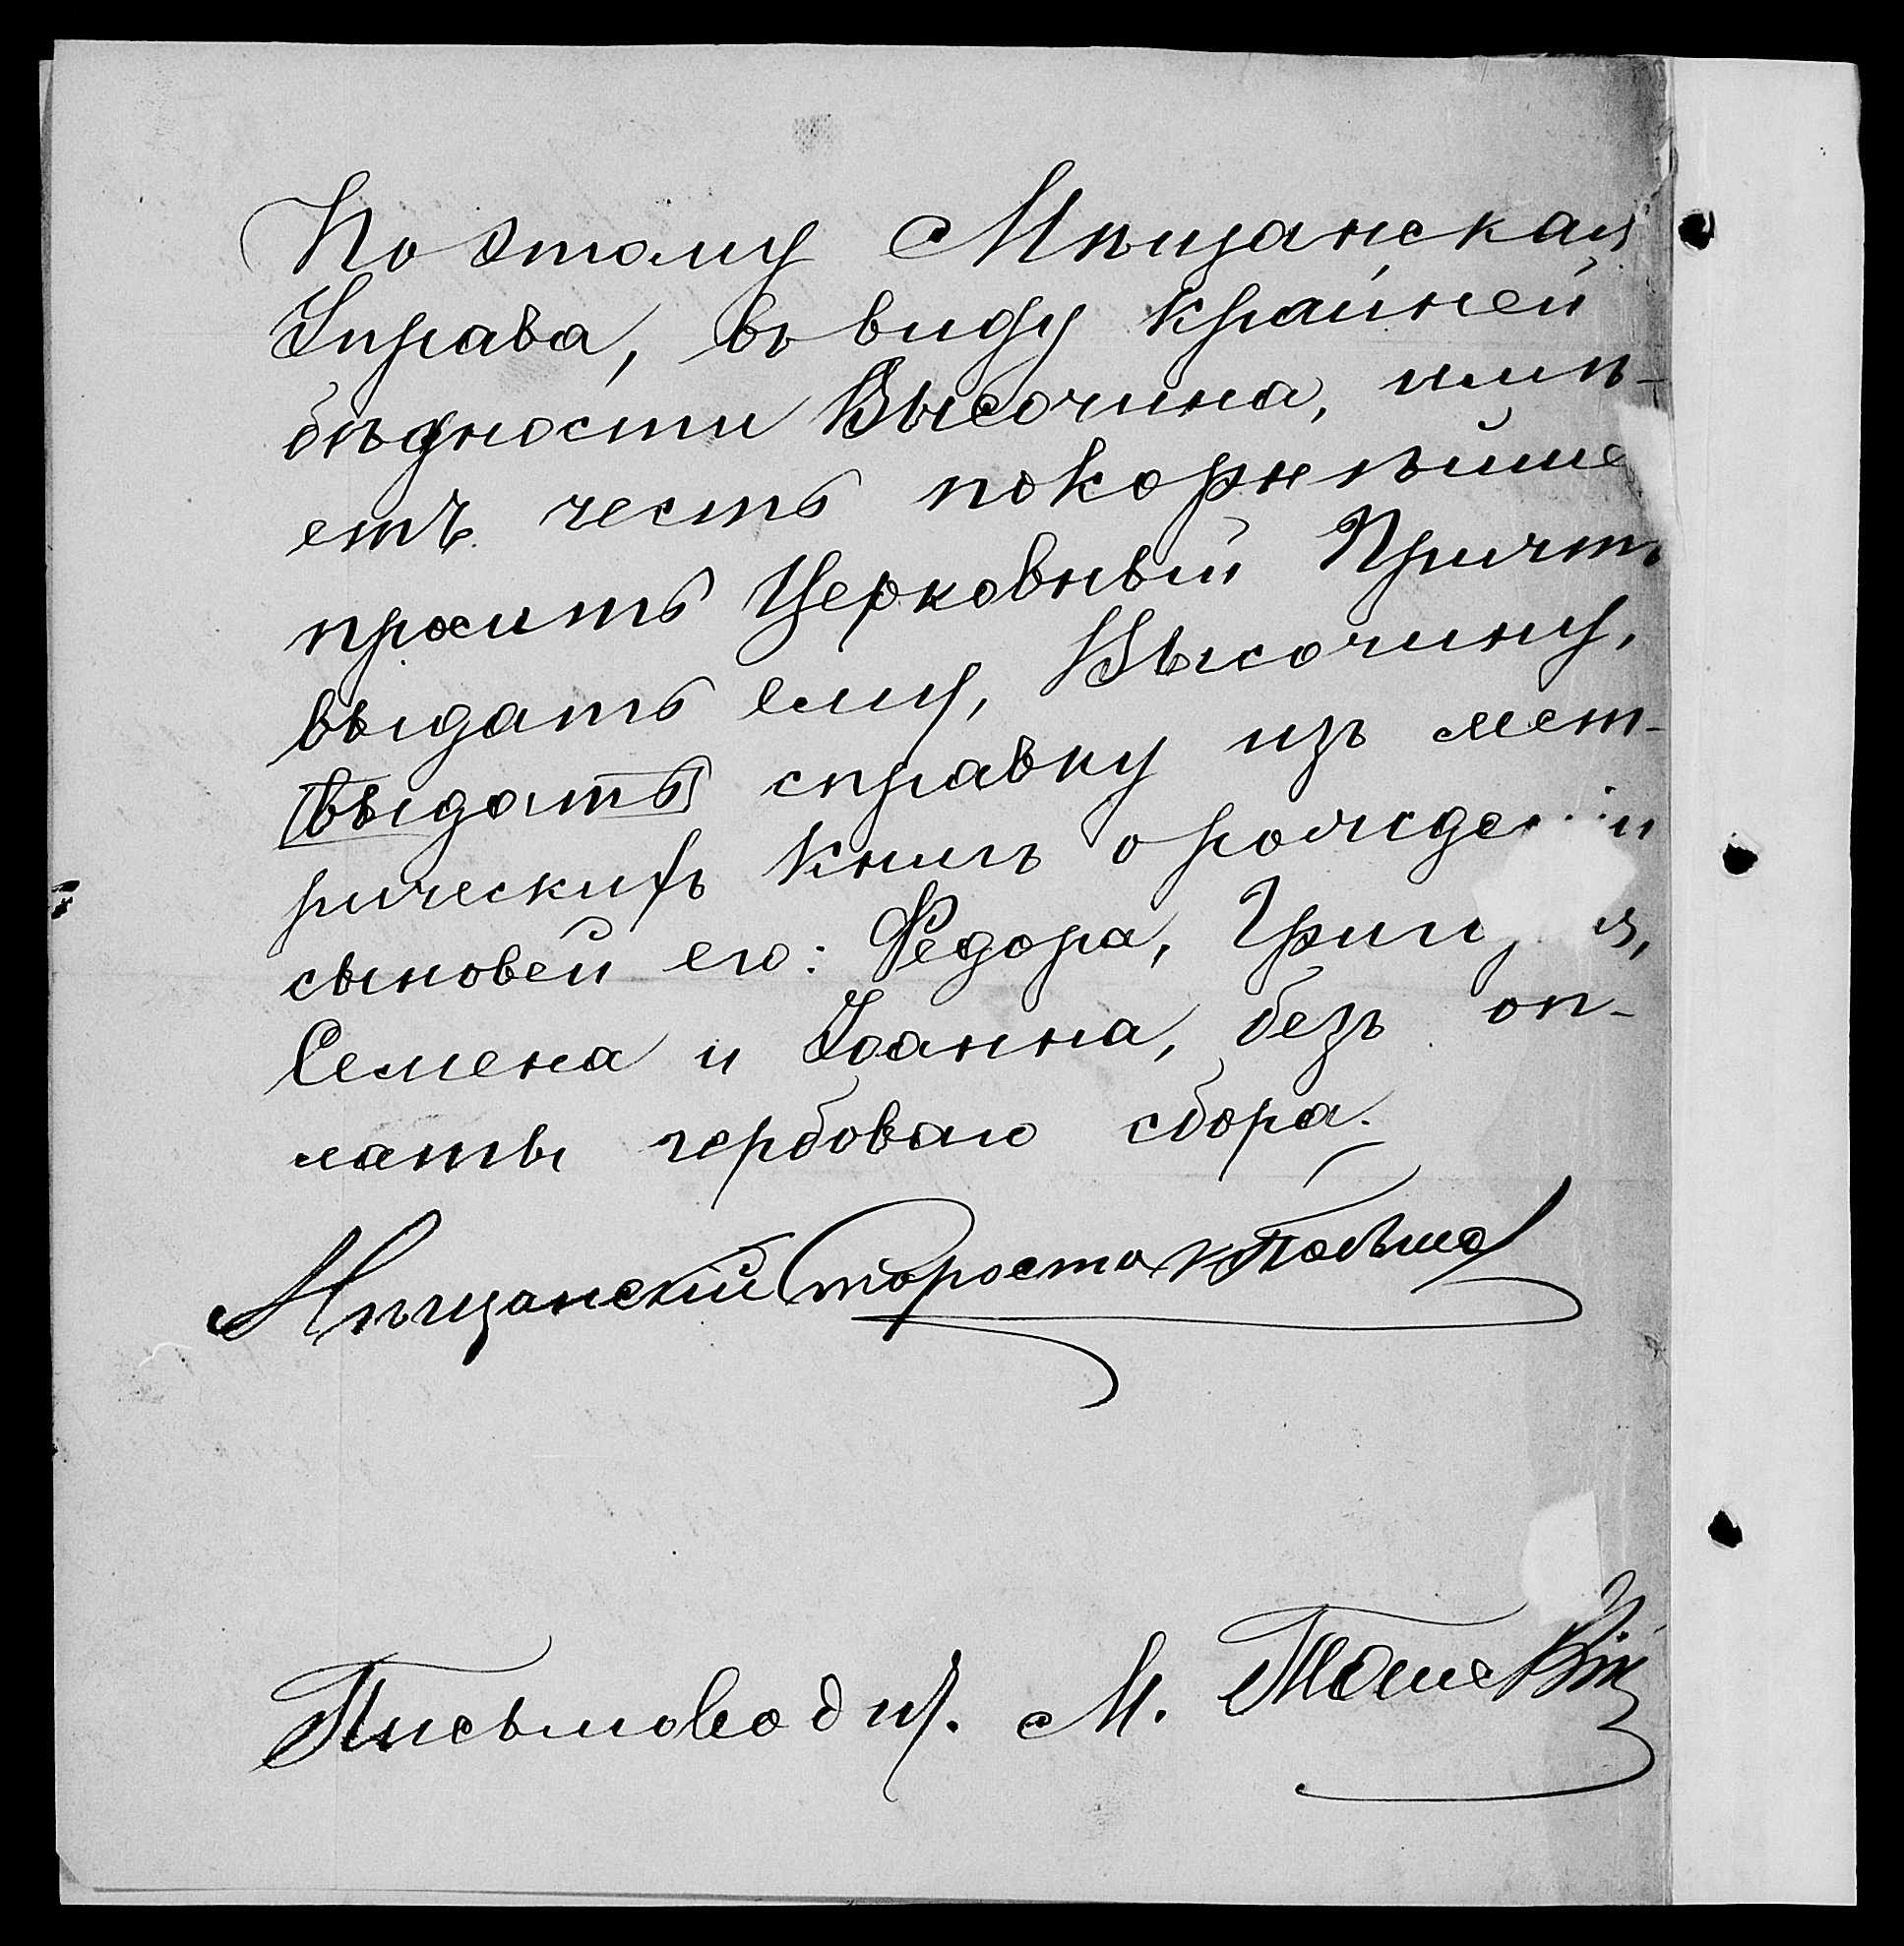 По этому Мѣщанская
Управа, въ виду крайней
бѣдности Высочина, имѣ-
етъ честь покорнѣйше
просить Церковный Причтъ
выдать ему, Высочину,
[выдать] справку изъ мет-
рическихъ книгъ о рожденіи
сыновей его: Федора, Григорія,
Семена и Іоанна, безъ оп-
латы гербоваго сбора.
Мѣщанскій Староста
Письмоводит. М.